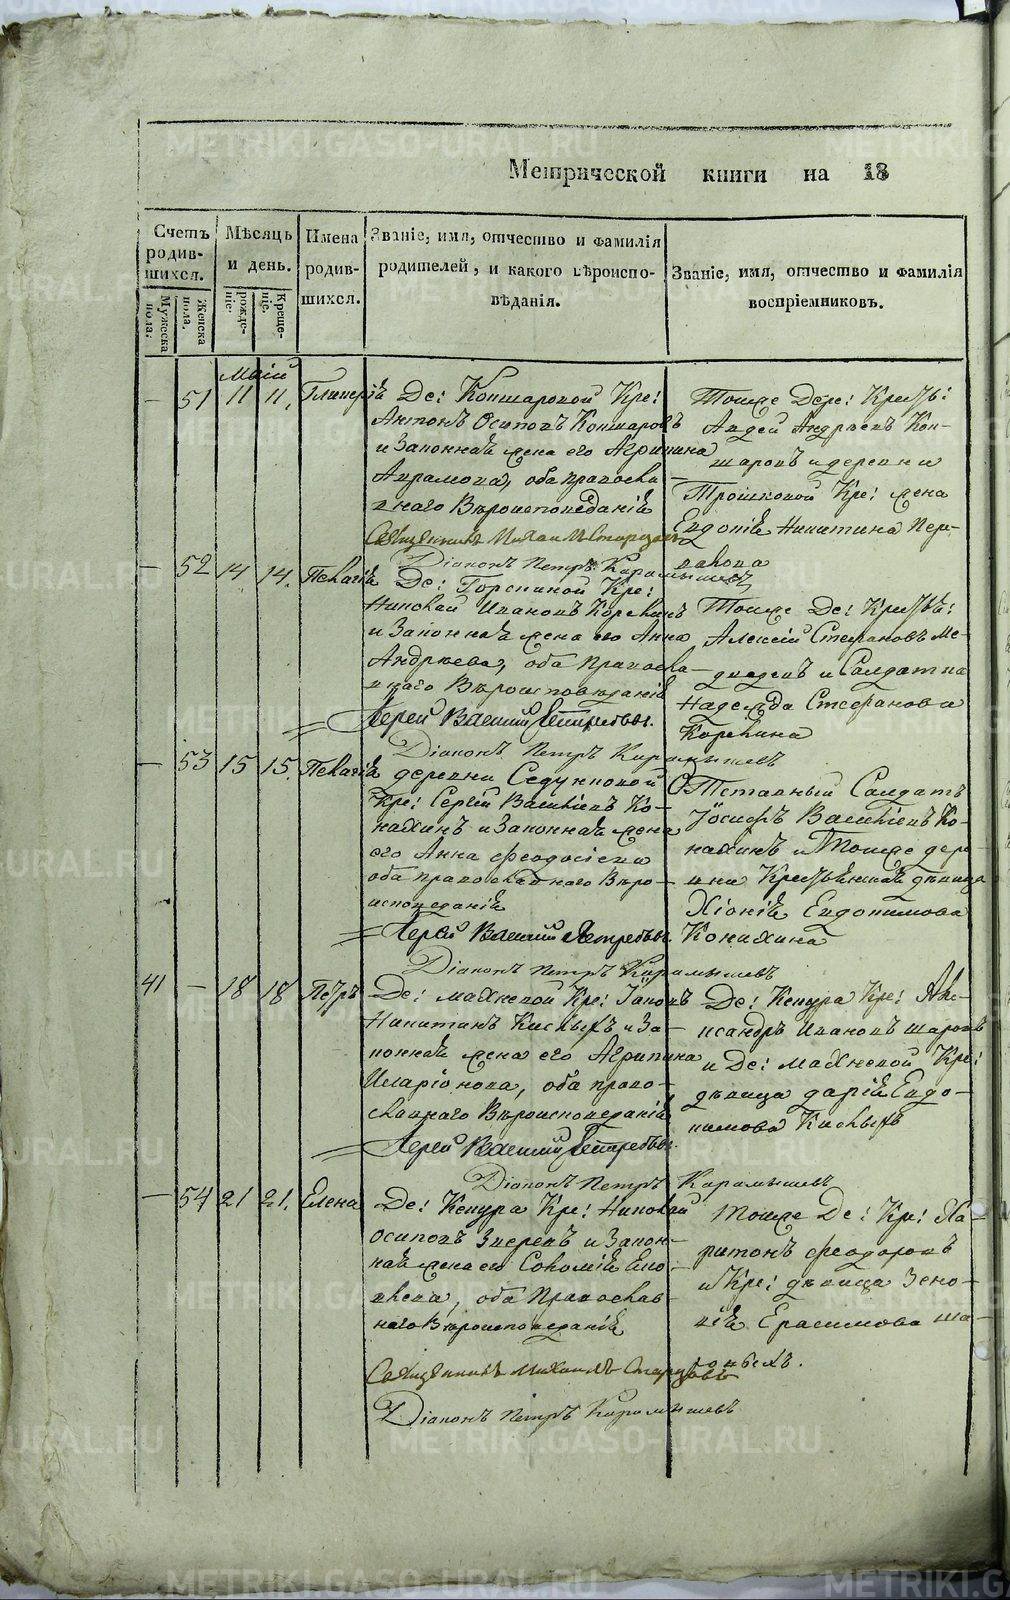 Метрической книги на 18
Счетъ родившихся.
Мужеска пола.
Женска пола.
Мѣсяць и день.
рождение.
Крещение.
Имена родившихся.
Званіе, имя, отчество и фамилія
родителей, и какого вѣроиспо-
вѣданія.
Званіе, имя, отчество и фамилія
воспріемниковъ.
Маій
— 51 11 11. Гликерія
Де: Коншаровой Кре:
Антонъ Осиповъ Коншаровъ
и Законная жена его Агрипина
Аврамова, оба православ-
наго Вѣроисповеданія
Священникъ Михаилъ
Діаконъ Петръ Карамышевъ
Тоиже Дере: Крестья:
Авдей Андрѣевъ Кон-
шаровъ и деревни
Трошковой Кре: жена
Евдокія Никитина Пер-
вакова
— 52 14 14. Пелагія
Де: Горскиной Кре:
Николай Ивановъ
и Законная жена его Анна
Андрѣева, оба Православ-
наго Вѣроисповѣданія
Іерей Василий
Діаконъ Петръ Карамышевъ
Тоиже Де: Крестья:
Алексій Стефановъ Ме-
дведевъ и Салдатка
Надежда Стефанова
— 53 15 15. Пелагія
деревни
Кре: Сергій Васильевъ Ко-
нахинъ и Законная жена
его Анна Феодосіева
оба православнаго Вѣро-
исповеданія
Іерей Василий
Діаконъ Петръ Карамышевъ
Отставный Салдатъ
Іосифъ Васильевъ Ко-
нахинъ и Тоиже дере-
вни Крестьянская дѣвица
Хіонія Евдокимова
Конахина
41 — 18 18 Петръ
Де: Махневой Кре: Іаковъ
Никитинъ Кислыхъ и За-
конная жена его Агрипина
Иларіонова, оба право-
славнаго Вѣроисповеданія
Іерей Василий
Діаконъ Петръ Карамышевъ
Де: Кепура Кре: Але-
ксандръ Ивановъ
и Де: Махневой Кре:
дѣвица Дарія Евдо-
кимова Кислыхъ
— 54 21 21. Елена
Де: Кепура Кре: Николай
Осиповъ Зверевъ и Закон-
ная жена его Соломія
оба Православ-
наго Вѣроисповеданія
Священникъ Михаилъ
Діаконъ Петръ Карамышевъ
Тоиже Де: Кре: Ха-
ритонъ Феодоровъ
и Кре: дѣвица Зено-
вія Ерасимова